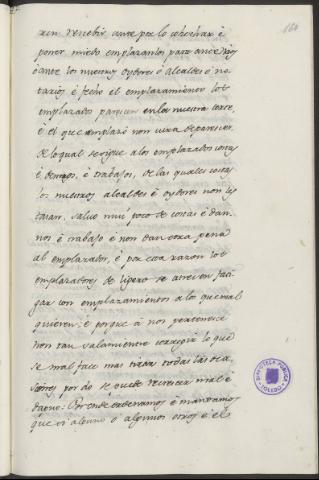 164
ren recebir unos por lo cohechar é
poner miedo emplazanlos para ante Nos
ó ante los nuestros oydores ó alcaldes ó no
tarios é fecho el emplazamiento los
emplazados parecen en la nuestra corte
é el que emplazó non cura de parescer
de lo qual se sigue a los emplazados costas
é daños, é trabajos, de las quales costas
los nuestros alcaldes é oydores non les
tasan, salvo mui poco de costas é dan
nos é trabajo é non dan otra pena
al emplazador, é por esta razon los
emplazadores de ligero se atreven fati
gar con emplazamientos a los que mal
quieren: é porque á nos pertenece
non tan salamiente corregir lo que
se mal face mas tirar todas las oca
siones por do se puede recrecer mal é
daño: Por ende ordenamos é mandamos
que si alguno ó algunos otros é el
BIBLIOTECA PUBLICA TOLEDO